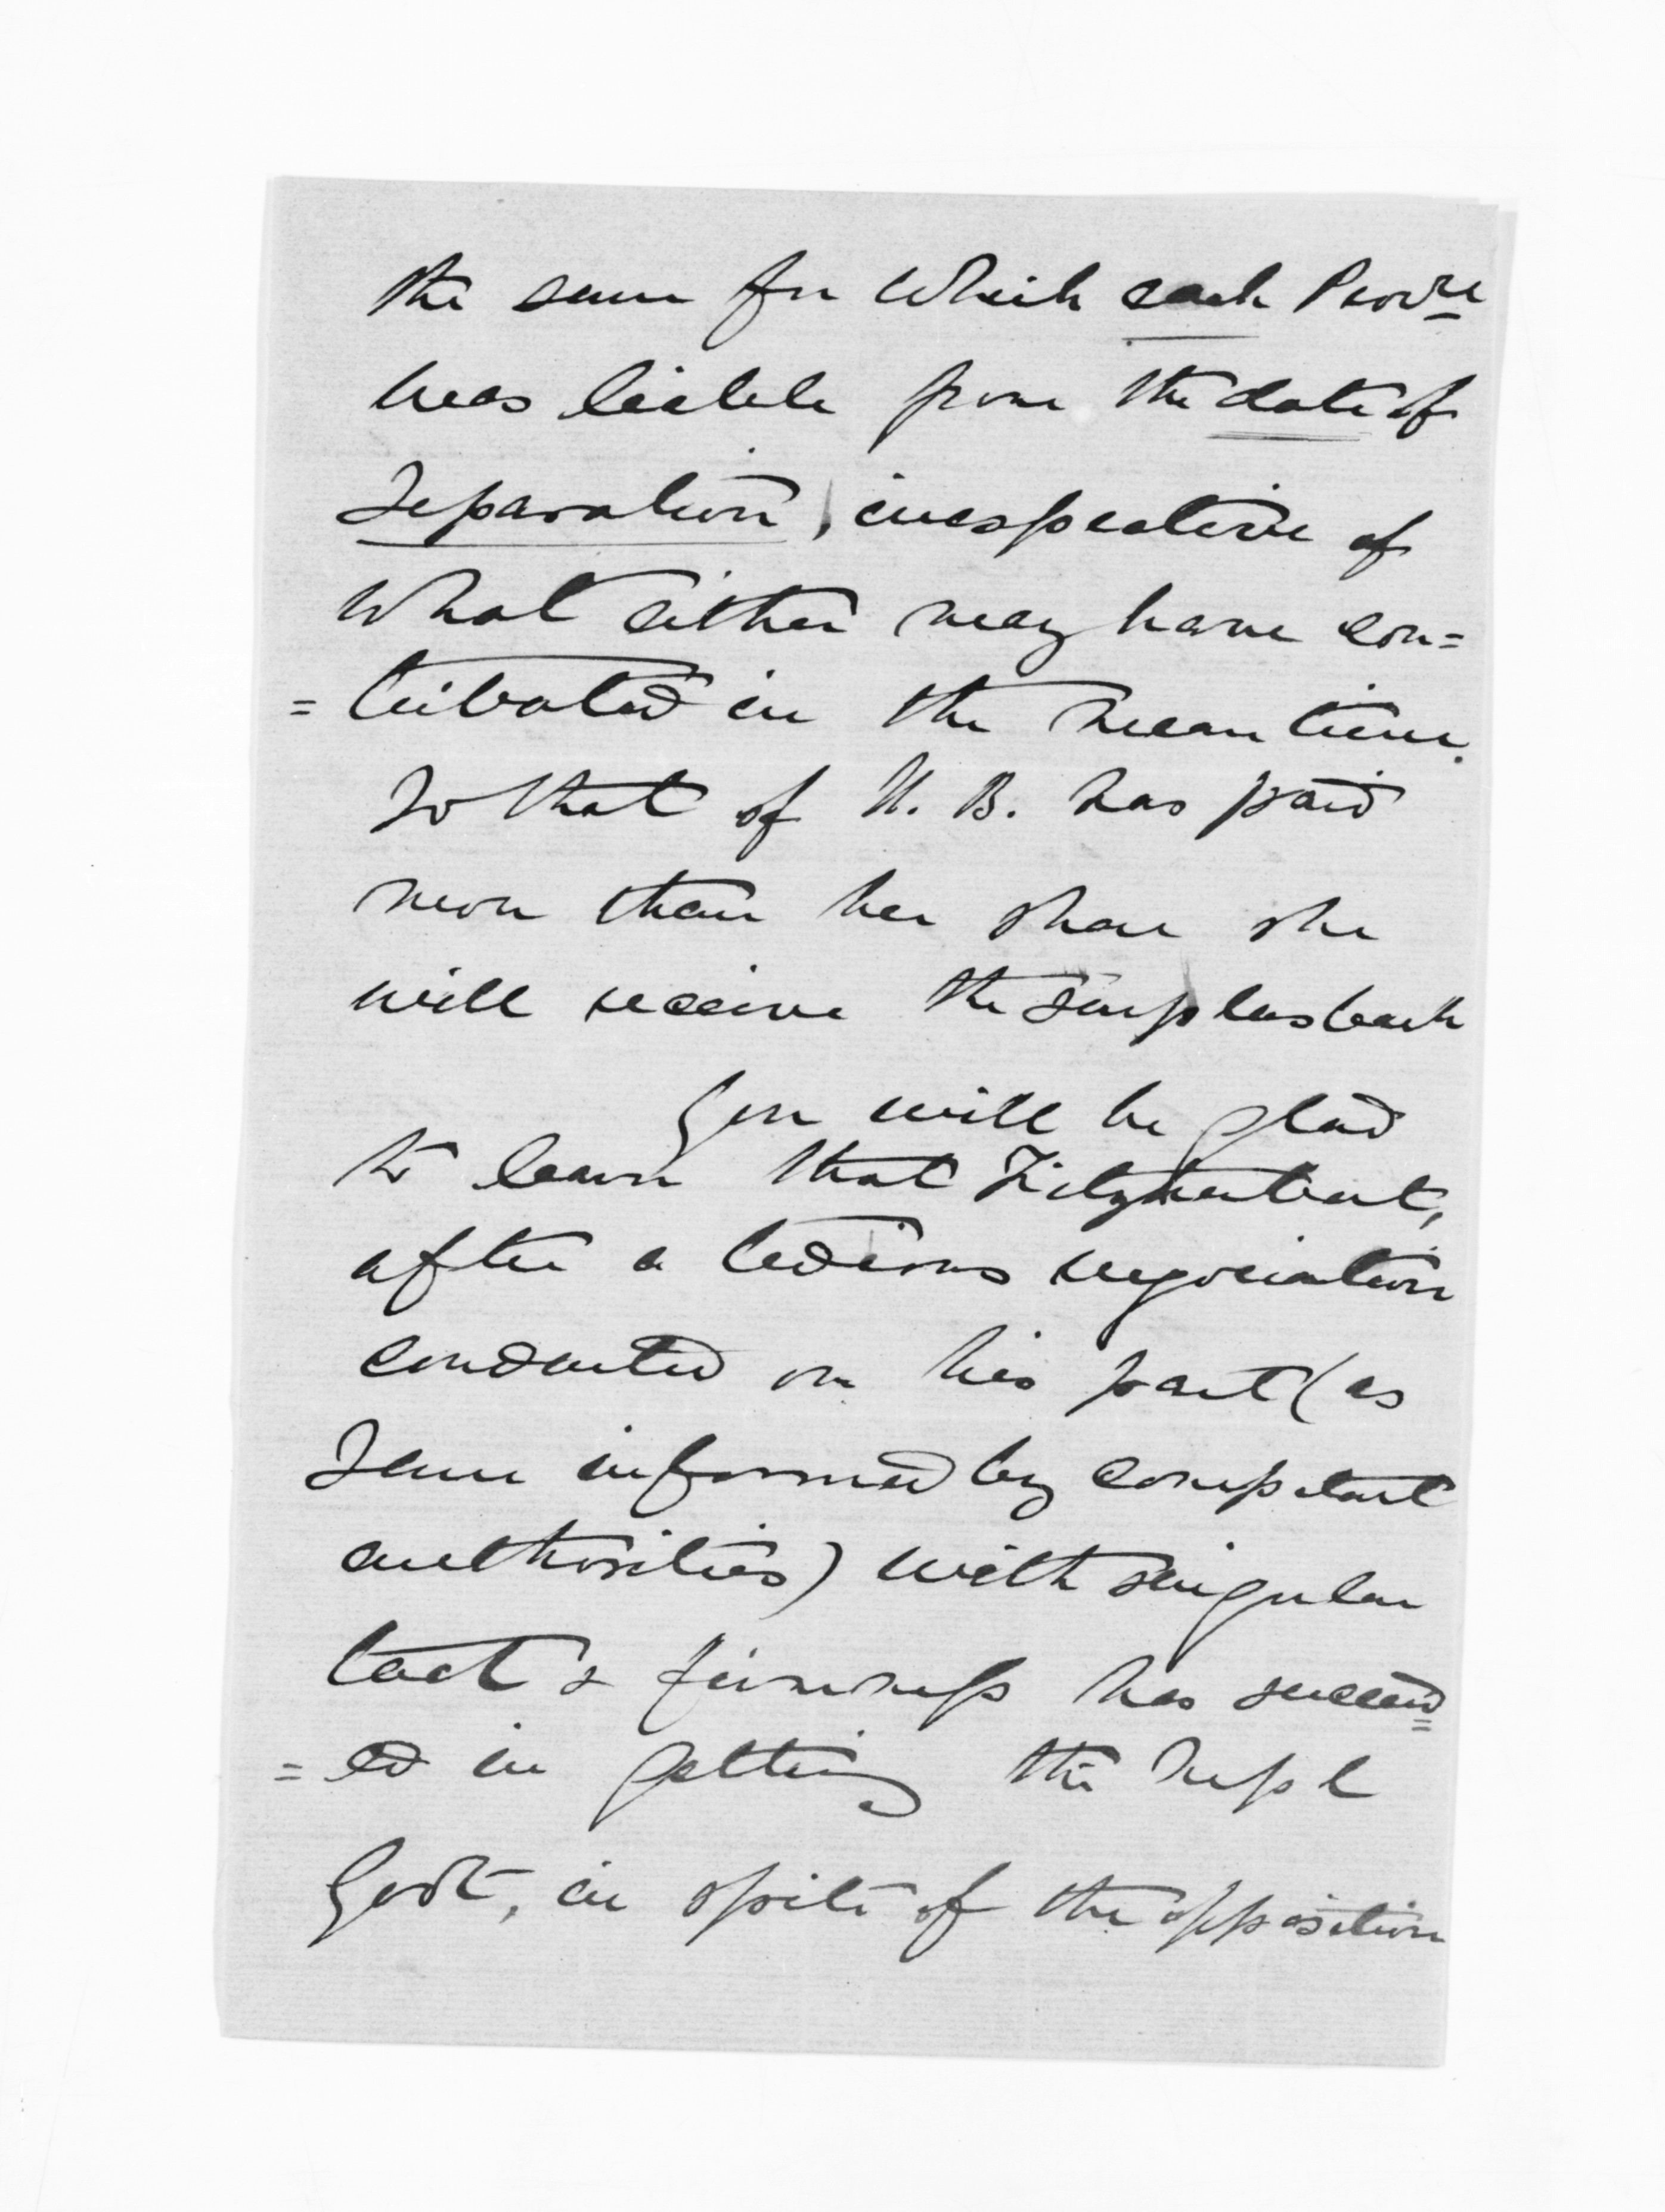 the sum for which each Provce
was liable from the date of
Separation, irrespective of
what either may have con=
=tributed in the mean time.
So that if N. B. has paid
more than her share she
will receive the surplus back
You will be glad
to learn that Fitzherbert,
after a tedious negociation
conducted on his part (as
I am informed by competent
authorities) with singular
tact & firmness has succeed=
=ed in getting the Impl
Govt, in spite of the opposition